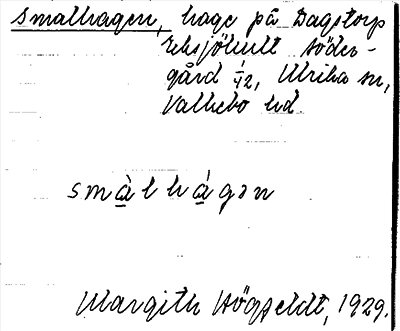 Smalhagen, hage på Dagstorp
Eksjöhult söder-
gård 1/2, Ulrika sn,
Valkebo hd
smàlhágən
Margith Högfeldt, 1929.